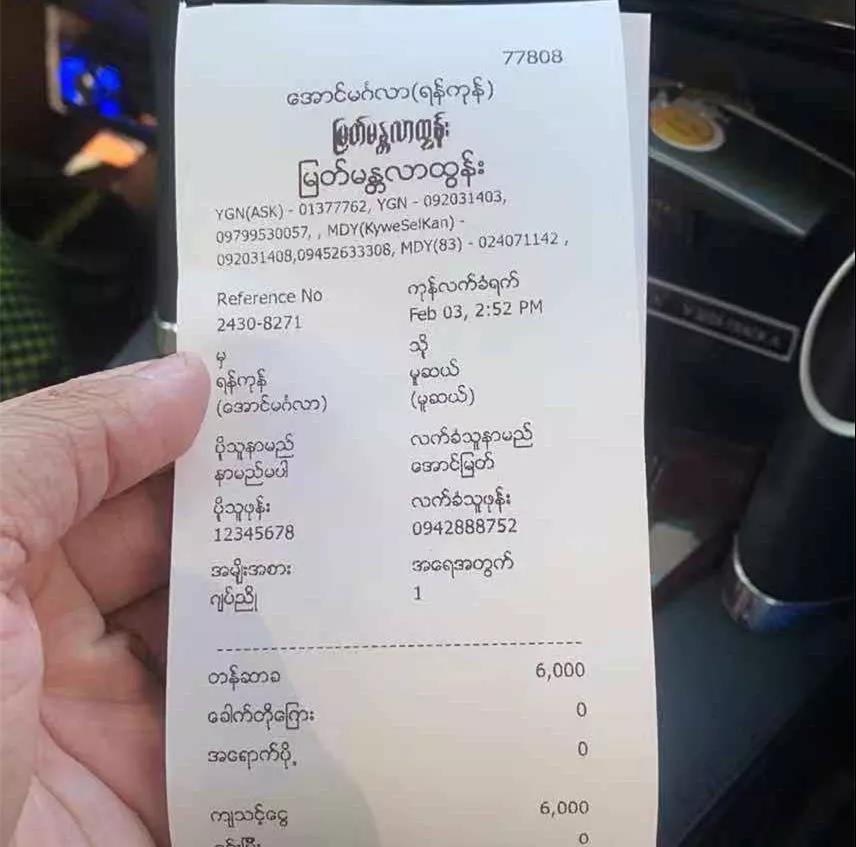 77808
အောင်မင်္ဂလာ(ရန်ကုန်)
မြတ်မန္တလာထွန်း
မြတ်မန္တလာထွန်း
YGN(ASK) - 01377762, YGN - 092031403,
09799530057, , MDY(KyweSelKan) -
092031408,09452633308, MDY(83) - 024071142 ,
Reference No ကုန်လက်ခံရက်
2430-8271 Feb 03, 2:52 PM
မှ သို
ရန်ကုန် မူဆယ်
(အောင်မင်္ဂလာ) (မူဆယ်)
ပိုသူနာမည် လက်ခံသူနာမည်
နာမည်မပါ အောင်မြတ်
ပိုသူဖုန်း လက်ခံသူဖုန်း
12345678 0942888752
အမျိုးအစား အရေအတွက်
ဂျပ်ညို 1
တန်ဆာခ 6,000
ခေါက်တိုကြေး 0
အရောက်ပို့ 0
ကျသင့်ငွေ 6,000
0